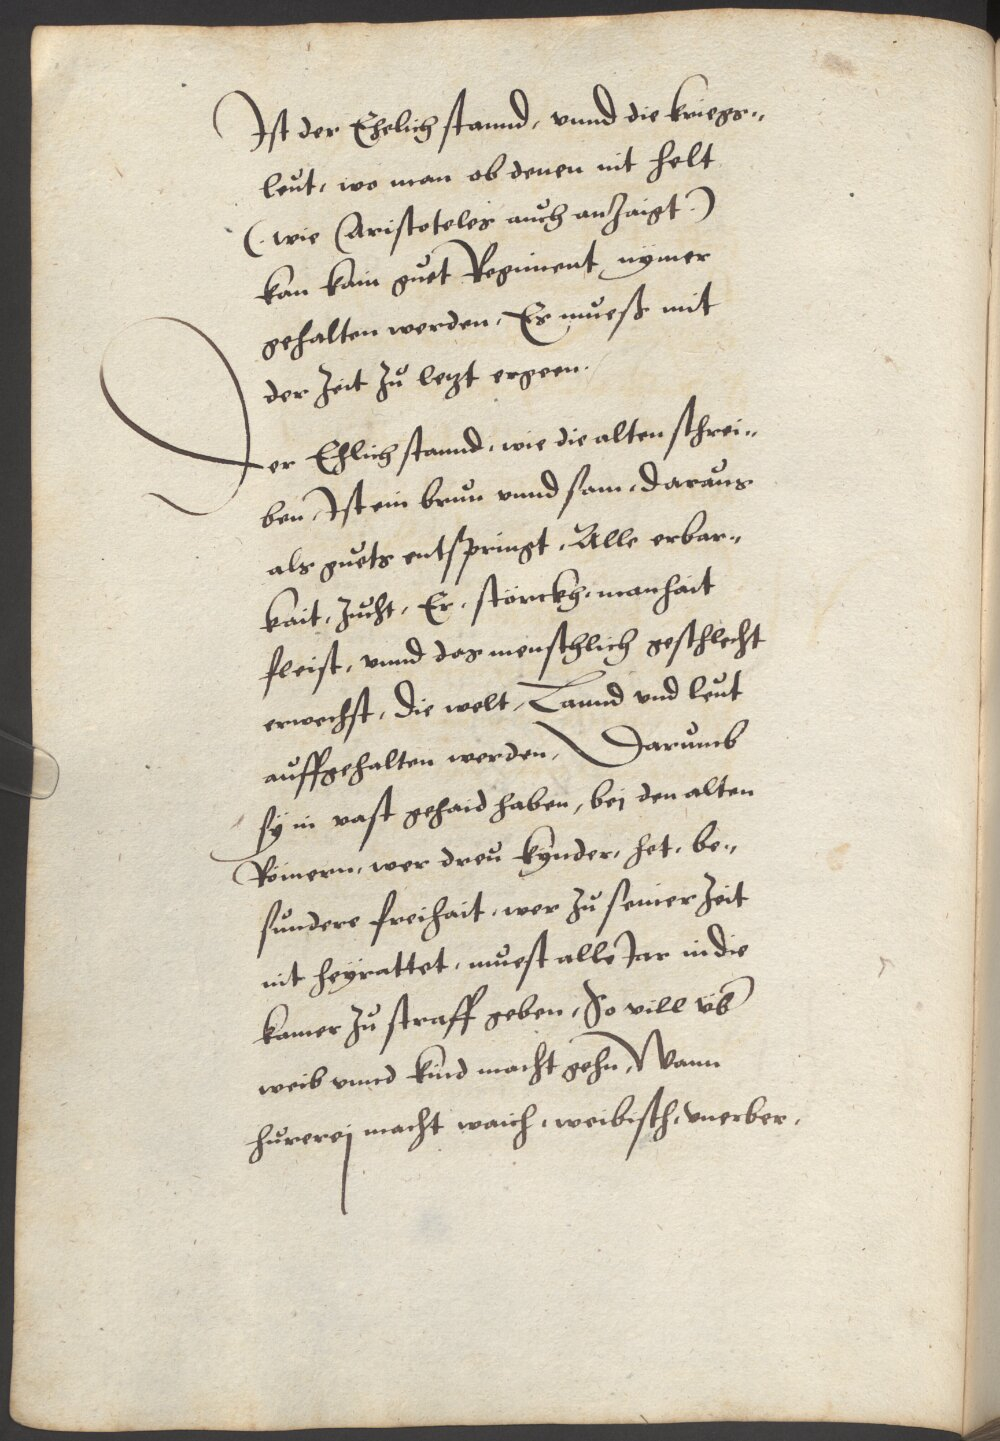 Ist der Ehelich stannd, vnnd die kriegs-
leut, wo man ob denen nit helt
(wie Aristoteles auch anzaigt)
kan kain guet Regiment nymer
gehalten werden, Es muesß mit
der zeit zu letzt ergeen.
Der Ehlich stannd, wie die alten schrei-
ben, Ist ein brun vnnd sam, daraus
als guets entspringt, Alle erbar-
kait, zucht, Er, störckh, manhait
fleist, vnnd das menschlich geschlecht
erwechst, die welt, Lannd vnd leut
auffgehalten werden, Darumb
sy in vast gehaid haben, bej den alten
Römern, wer dreu kynder, het, be-
sundere freihait, wer zu seiner zeit
nit heyrattet, muest alle Jar in die
kamer zu straff geben, So vill vb
weib vnnd kind macht gehn, Wann
hurerej macht waich, weibisch, vnerber,